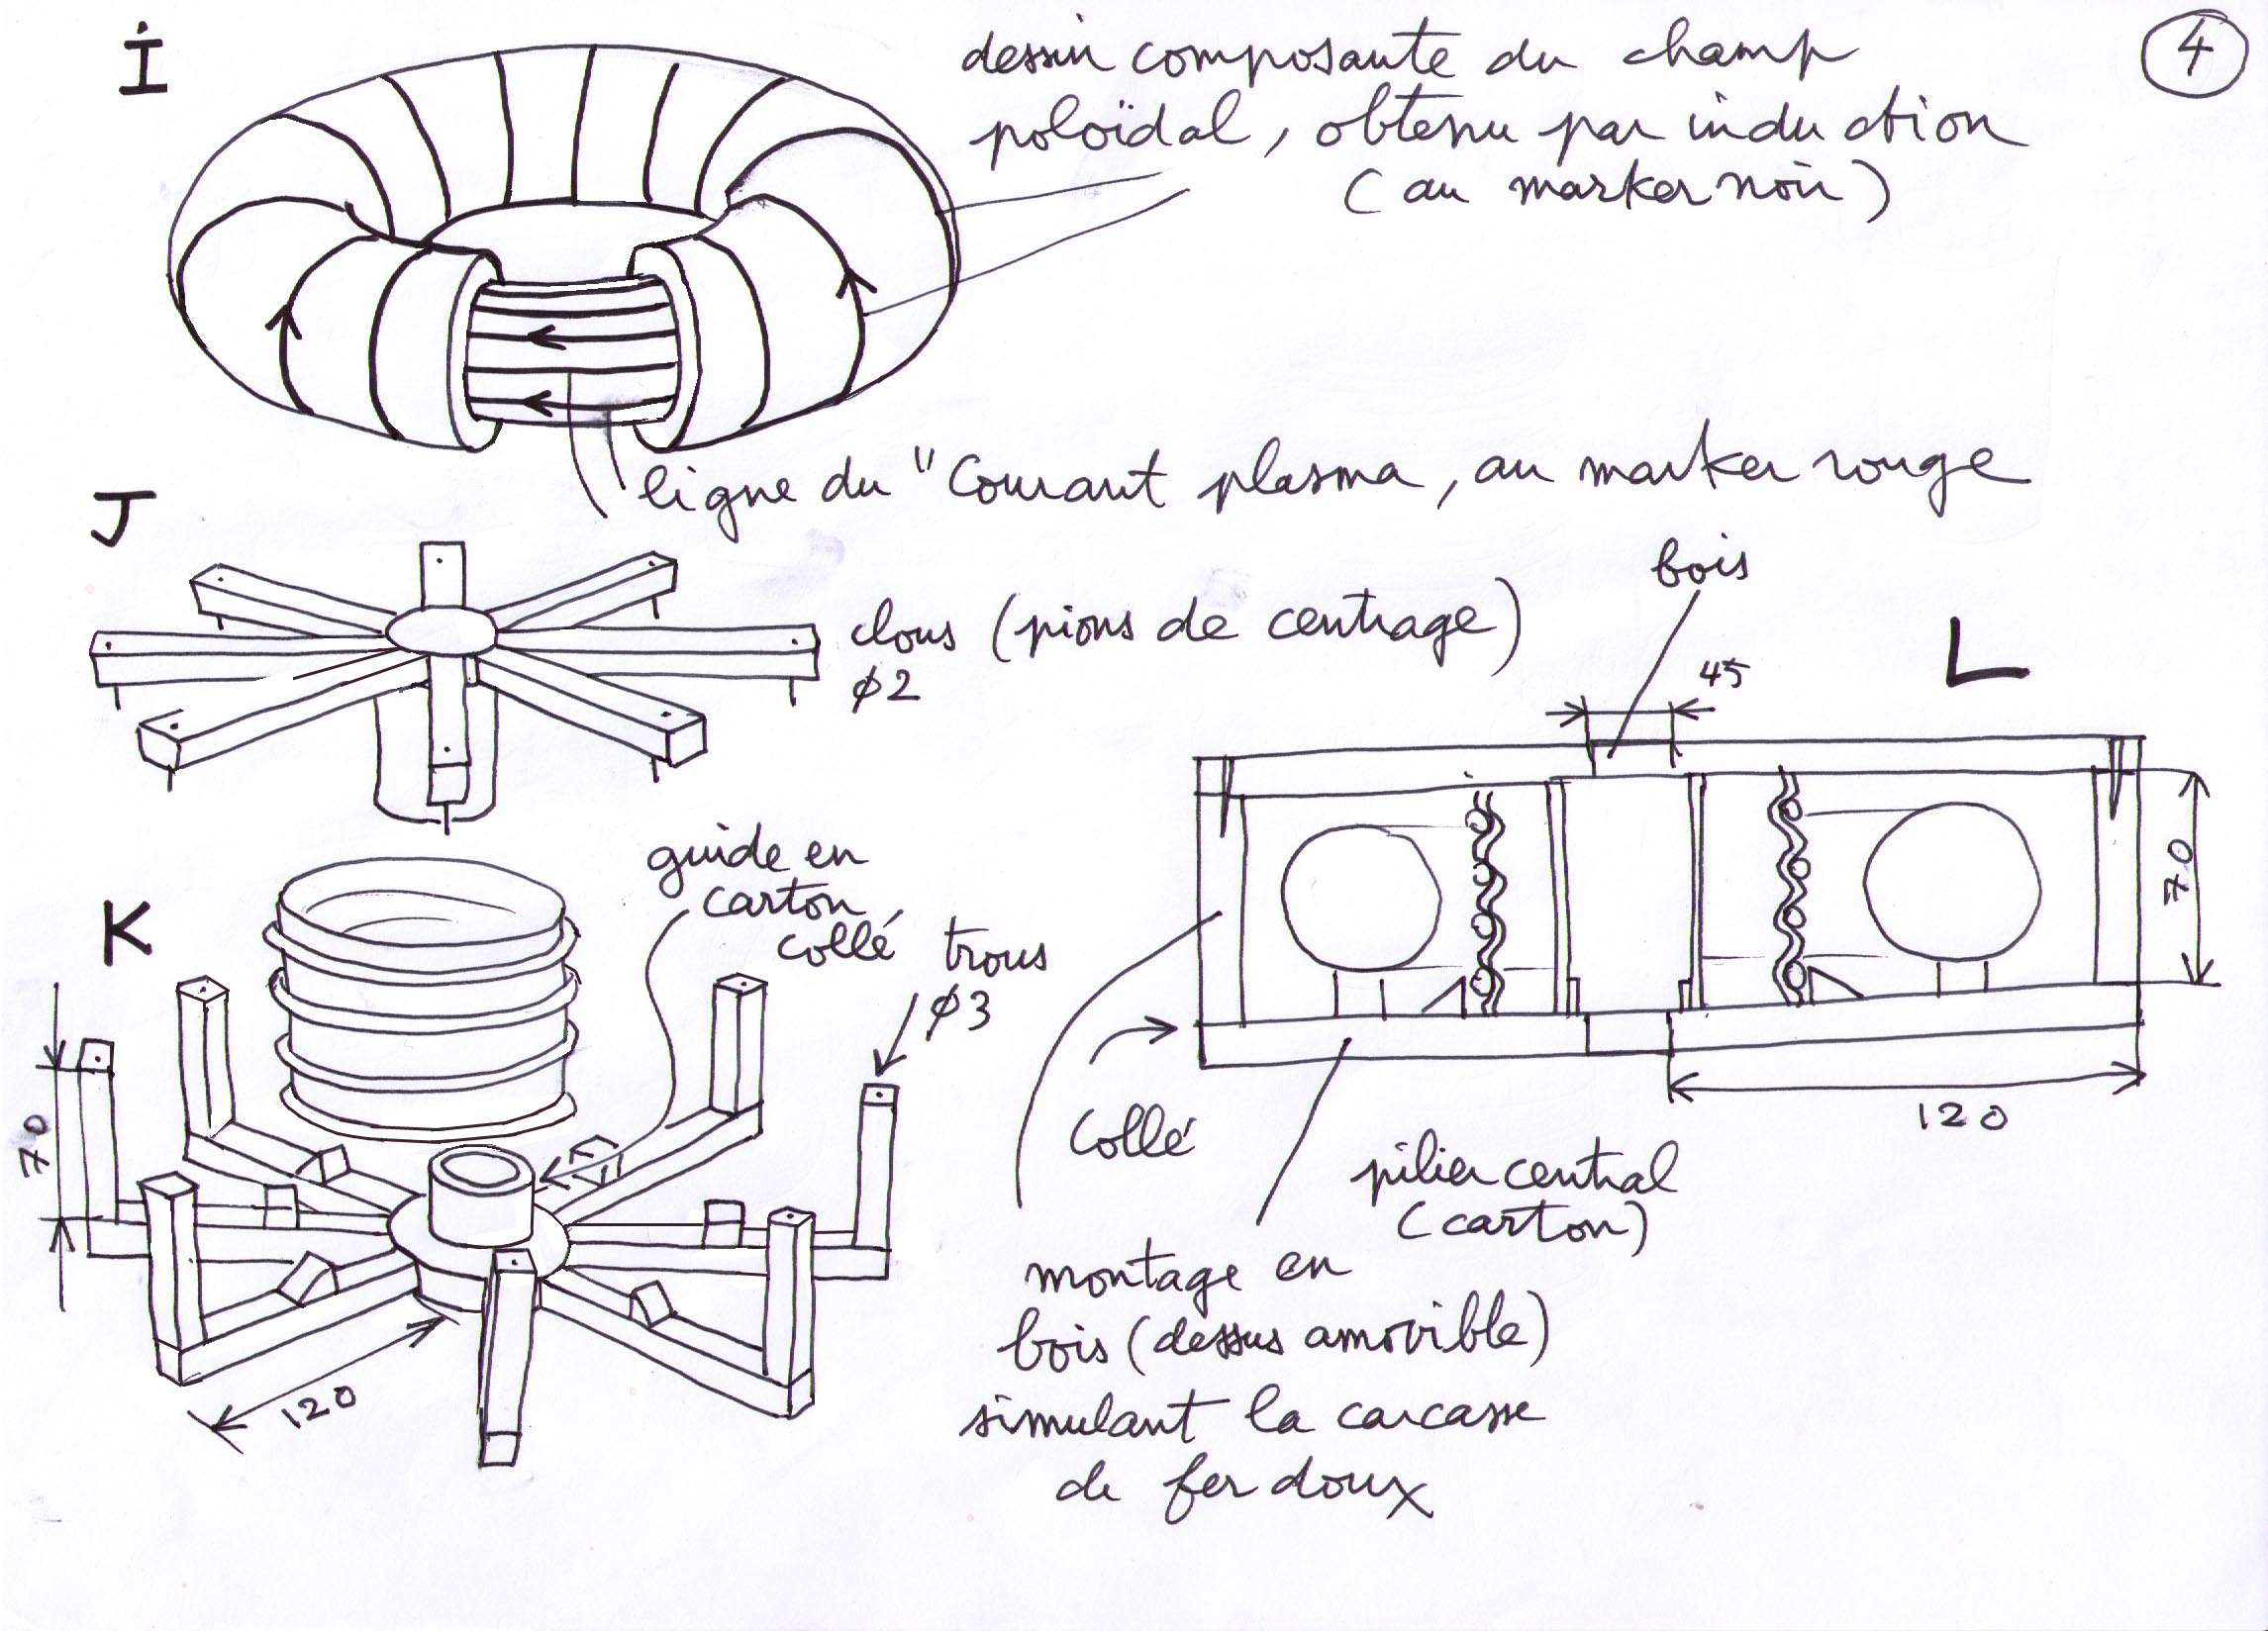 i
dessin composante du champ
poloïdal, obtenu par induction
(au marker noir)
4
ligne du "Courant plasma, au marker rouge
J
clous (pions de centrage)
ø2
bois
45
L
K
guide en
carton
collé
trous
ø3
70
120
70
120
Collé
pilier central
(carton)
montage en
bois (dessus amovible)
simulant la carcasse
de fer doux